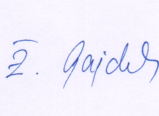 Ž. Gajdoš